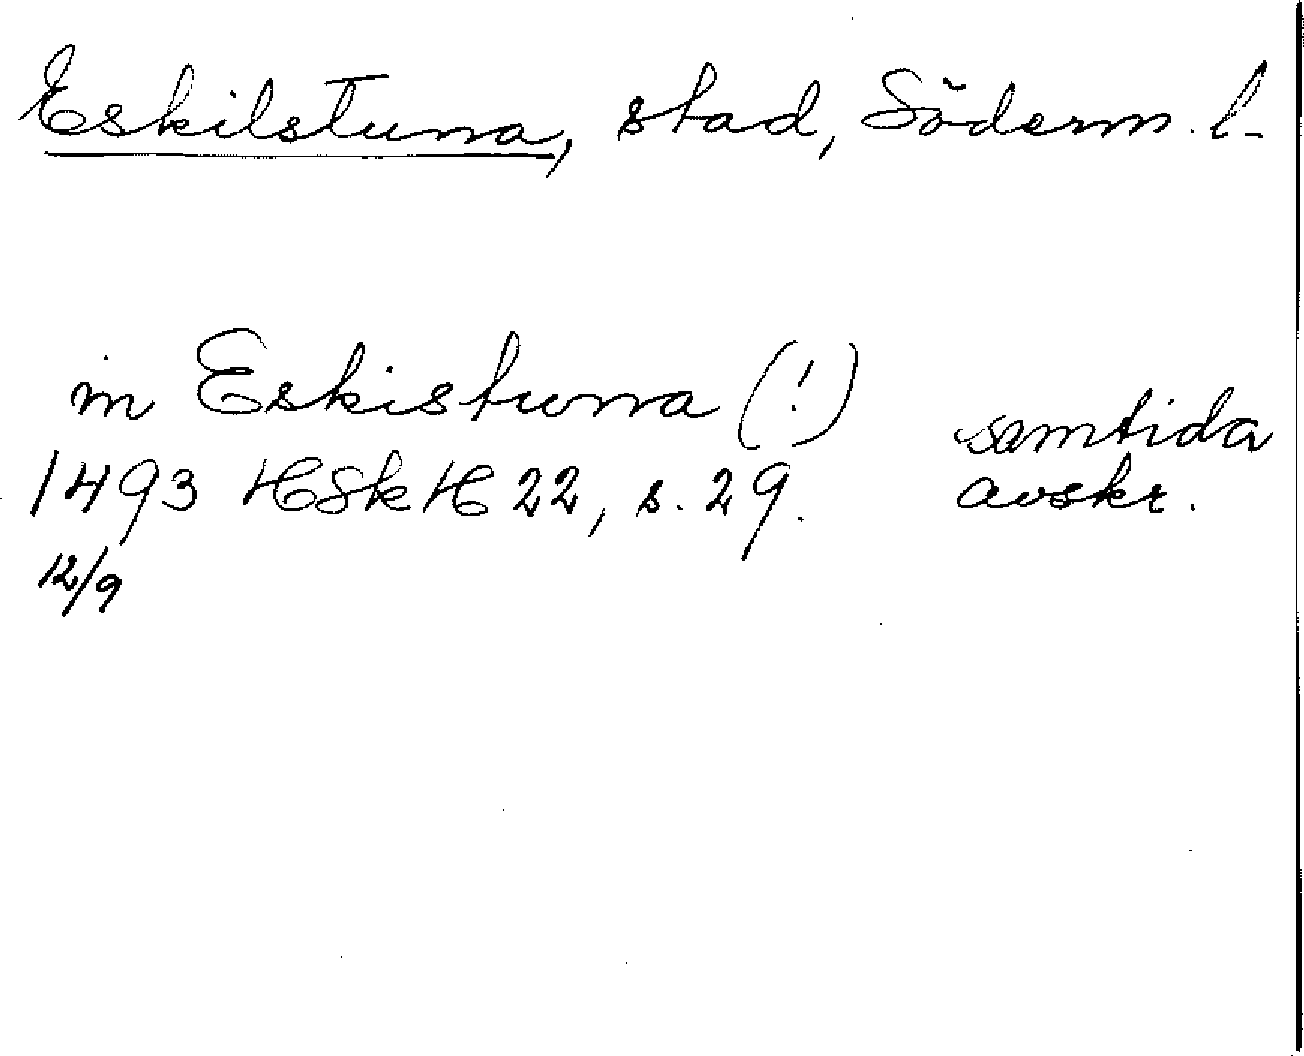 Eskilstuna, stad, Söderm. l.
in Eskistuna (!) samtida
1493 HSkH 22, s. 29. avskr.
12/9